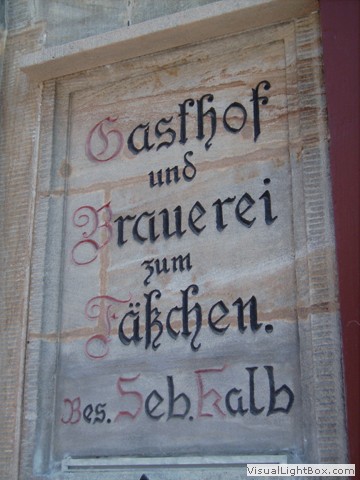 Gasthof
und
Brauerei
zum
Fäßchen.
Bes. Seb. Kalb
VisualLightBox.com